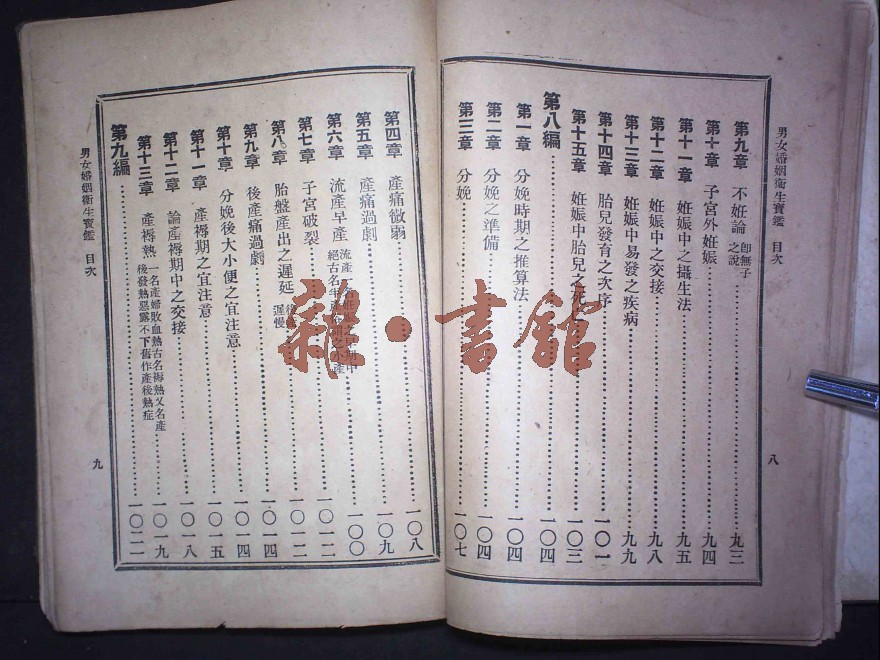 男女婚姻衛生寶鑑 目次
八
第九章 不妊論 即無子之說……九三
第十章 子宮外妊娠……九四
第十一章 妊娠中之攝生法……九五
第十二章 妊娠中之交接……九八
第十三章 妊娠中易發之疾病……九九
第十四章 胎兒發育之次序……一〇一
第十五章 妊娠中胎兒之死……一〇三
第八編……一〇四
第一章 分娩時期之推算法……一〇四
第二章 分娩之準備……一〇四
第三章 分娩……一〇七
第四章 產痛微弱……一〇八
第五章 產痛過劇……一〇九
第六章 流產早產 流產一名妊娠之早期中絕古名半產之小產……一〇〇
第七章 子宮破裂……一〇一二
第八章 胎盤產出之遲延 後產遲慢……一〇一二
第九章 後產痛過劇……一〇一四
第十章 分娩後大小便之宜注意……一〇一四
第十一章 產褥期之宜注意……一〇一五
第十二章 論產褥期中之交接……一〇一八
第十三章 產褥熱 一名產婦敗血熱古名褥熱又名產後發熱惡露不下舊作產後熱症……一〇一九
第九編……一〇二一
男女婚姻衛生寶鑑 目次
九
雜·書館